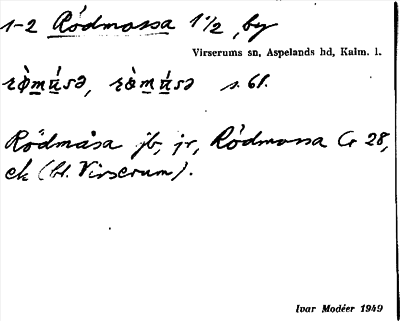 1-2 Rödmossa 1 1/2, by
Virserums sn, Aspelands hd, Kalm. l.
s. 61.
Rödmåsa jb, jr, Rödmossa Gr 28,
ek (bl. Virserum).
Ivar Modéer 1949